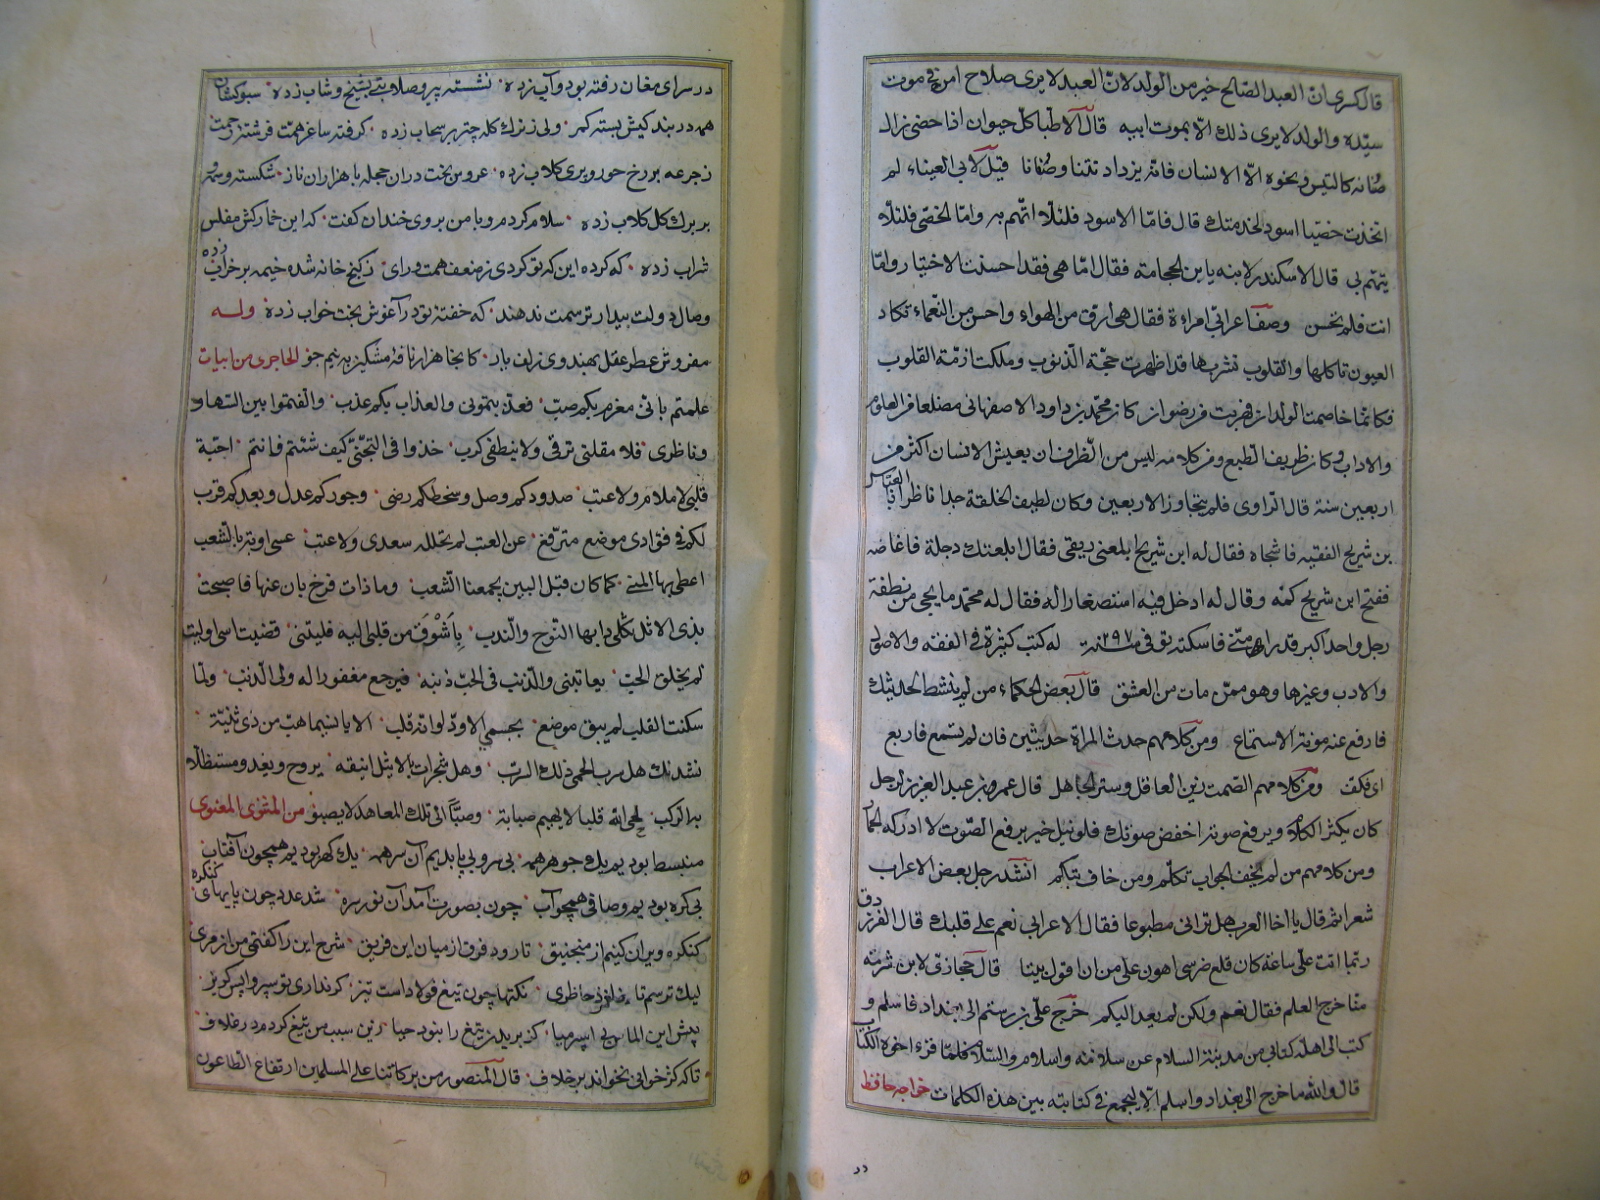 قال كسرى ان العبد الصالح خير من الولد لان العبد لا يرى صلاح امره فى موت
سيّده والولد لا يرى ذلك الا بموت ابيه قال الاطبا كل حيوان اذا خصى زال
صنانه كالتيس ونحوه الّا الانسان فانه يزداد نتنا وصنانا قيل لابى العيناء لم
اتخذت خصيّا اسود لخدمتك قال فامّا الاسود فلئلّا اتّهم به وامّا الخصى فلئلّا
يتّهم بى قال الاسكندر لابنه يا بن الحجامة فقال امّا هى فقد احسنت الاختيار وامّا
انت فلم تحسن وصف اعرابى امراة فقال هى ارق من الهواء واحسن من النعماء تكاد
العيون تاكلها والقلوب تشربها قد اظهرت حجّة الذنوب وملكت ازمّة القلوب
فكانّما خاصمت الولدان فهربت من رضوان كان محمّد بن داود الاصفهانى متضلعا من العلوم
والاداب وكان ظريف الطبع ومن كلامه ليس من الظرف ان يعيش الانسان اكثر من
اربعين سنة قال الراوى فلم يتجاوز الاربعين وكان لطيف الخلقة جدا ناظر ابا العباس
بن شريح الفقيه فاشجاه فقال له ابن شريح ابلعنى ريقى فقال ابلعتك دجلة فاغاضه
ففتح ابن شريح كمّه وقال له ادخل فيه استصغارا له فقال له محمّد ما يجى من نطفة
رجل واحد اكبر قدرا منّى فاسكته توفى فى سنة ٢٩٧ له كتب كثيرة فى الفقه والاصول
والادب وغيرها وهو ممّن مات من العشق قال بعض الحكماء من لم ينشط لحديثك
فارفع عنه مؤنة الاستماع ومن كلامهم حدث المراة حديثين فان لم تسمع فاربع
اى فكف ومن كلامهم الصمت زين العاقل وستر الجاهل قال عمر بن عبد العزيز لرجل
كان يكثر الكلام ويرفع صوته اخفض صوتك فلو نيل خير برفع الصّوت لادركه الحمار
ومن كلامهم من لم يخف الجواب تكلّم ومن خاف تبكم انشد رجل بعض الاعراب
شعرا ثم قال يا اخا العرب هل ترانى مطبوعا فقال الاعرابى نعم على قلبك قال الفرزدق
ربّما اتت علىّ ساعة كان قلع ضرسى اهون علىّ من ان اقول بيتا قال حجازى لابن شبرمه
منّا خرج العلم فقال نعم ولكن لم يعد اليكم خرج على بن رستم الى بغداد فاسلم و
كتب الى اهله كتابى من مدينة السلام عن سلامة واسلام والسّلام فلمّا قرء اخوه الكتاب
قال والله ما خرج الى بغداد واسلم الّا ليجمع فى كتابته بين هذه الكلمات خواجه حافظ
در سراى مغان رفته بود وآب زده نشسته پير وصلايى بشيخ وشاب زده سبوكشان
همه در بندكيش بسته كمر ولى ز ترك كله چتر بر سحاب زده گرفته ساغر همّت فرشته رحمت
ز جرعه بر رخ حور وپرى كلاب زده عروس بخت در ان حجله با هزاران ناز شكسته وسمه و
بر برك كل كلاب زده سلام كردم وبا من بروى خندان كفت كه اين خماركش مفلس
شراب زده كه كرده اين كه تو كردى ز ضعف همت وراى ز كنج خانه شده خيمه بر خراب زده
وصال دولت بيدار ترسمت ندهند كه خفته تو در آغوش بخت خواب زده وله
مفروش عطر عقل بهندوى زلف يار كانجا هزار نافه مشكين به نيم جو الحاجرى من ابيات
علمتم بانّى مغرم بكم صبّ فعذّبتمونى والعذاب بكم عذب والفتموا بين السهاد و
وناظرى فلا مقلتى ترقى ولا ينطفى كرب خذوا فى التجنّى كيف شئتم فانتم احبة
قلبى لا ملام ولا عتب صدودكم وصل وسخطكم رضى وجوركم عدل وبعدكم قرب
لكم فى فؤادى موضع مترفع عن العتب لم يحلله سعدى ولا عتب عسى اوبة بالشعب
اعطى بها المنى كما كان قبل البين يجمعنا الشعب وما ذات فرخ بان عنها فاصبحت
بذى الاثل ثكلى دابها النوح والندب باشوق من قلبى اليه فليتنى قضيت اسى او ليت
لم يخلق الحبّ يعاتبنى والذنب فى الحبّ ذنبه فيرجع مغفورا له ولى الذنب ولمّا
سكنت القلب لم يبق موضع بجسمى الا ودّ لو انّه قلب الا يا نسيما هبّ من ذى ثنيّة
نشدتك هل سرب الحمى ذلك السرب وهل شجرات بالاثيل انيقة يروح ويغدو مستظلّا
بها الركب لحى الله قلبا لا يهيم صبابة وصبّا الى تلك المعاهد لا يصبو من المثنوى المعنوى
منبسط بوديم يك جوهر همه بى سر وبى پا بديم آن سر همه يك كهر بوديم همچون آفتاب
بى كره بوديم وصافى همچو آب چون بصورت آمد آن نور سره شد عدد چون سايه‌هاى كنكره
كنكره ويران كنيم از منجنيق تا رود فرق از ميان اين فريق شرح اين را كفتمى من از مرى
ليك ترسم تا نلغزد خاطرى نكتها چون تيغ فولادست تيز كر ندارى تو سپر واپس كريز
پيش اين الماس بى اسپر ميا كز بريدن تيغ را نبود حيا زين سبب من تيغ كردم در غلاف
تا كه كژ خوانى نخواند بر خلاف قال المنصور من بركاتنا على المسلمين ارتفاع الطاعون